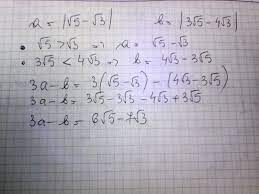 a = |√5 - √3|   b = |3√5 - 4√3|
• √5 > √3 ⇒ a = √5 - √3
• 3√5 < 4√3 ⇒ b = 4√3 - 3√5
3a - b = 3(√5 - √3) - (4√3 - 3√5)
3a - b = 3√5 - 3√3 - 4√3 + 3√5
3a - b = 6√5 - 7√3